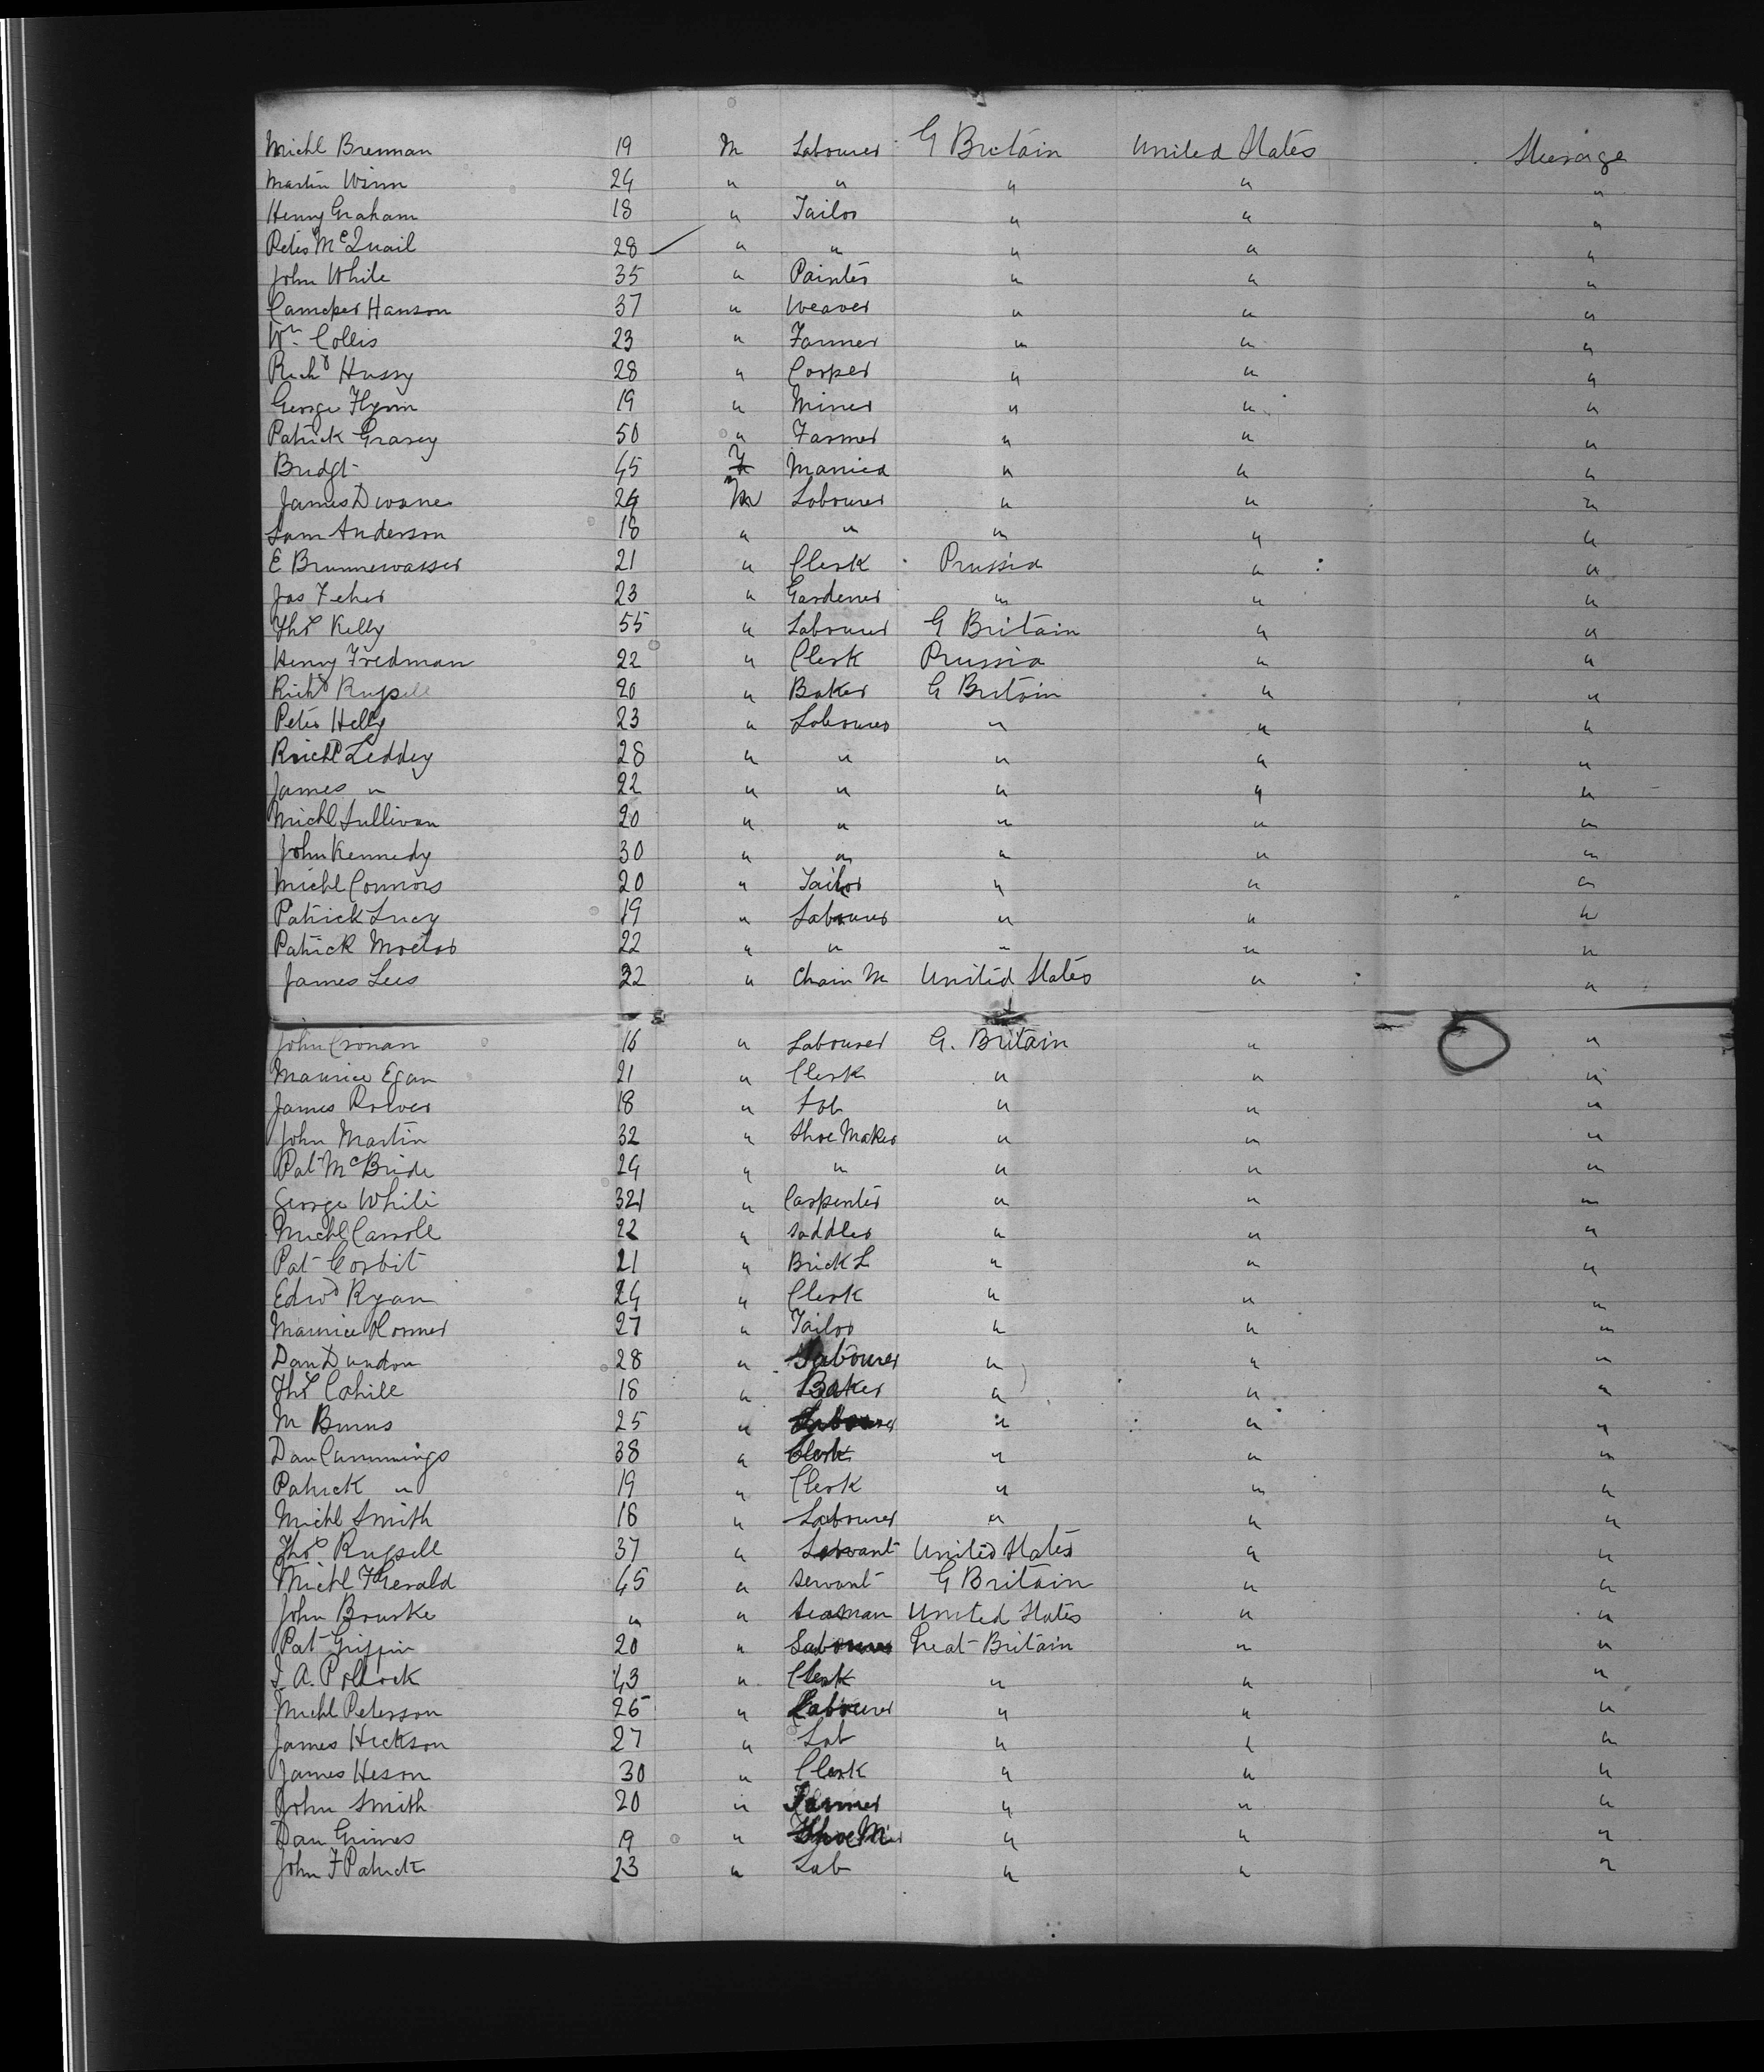 Michl Brennan 19 M Labourer G Britain United States Steerage
Martin Winn 24 " " " " "
Henry Graham 18 " Tailor " " "
Peter McQuail 28 " " " " "
John White 35 " Painter " " "
Hanson 37 " Weaver " " "
Wm Collis 23 " Farmer " " "
Richd Hussy 28 " Cooper " " "
George Flynn 19 " Miner " " "
Patrick Grasey 50 " Farmer " " "
Bridgt 45 F Married " " "
James Dwane 24 M Labourer " " "
Sam Anderson 18 " " " " "
E Brunnewasser 21 " Clerk Prussia " "
Jas Feher 23 " Gardener " " "
Thos Kelly 55 " Labourer G Britain " "
Henry Fredman 22 " Clerk Prussia " "
Richd Russell 20 " Baker G Britain " "
Peter Helly 23 " Labourer " " "
Leddey 28 " " " " "
James " 22 " " " " "
Michl Sullivan 20 " " " " "
John Kennedy 30 " " " " "
Michl Connors 20 " Tailor " " "
Patrick Lucy 19 " Labourer " " "
Patrick 22 " " " " "
James Lees 32 " Chain M United States " "
John Cronan 16 " Labourer G. Britain " "
Maurice Egan 21 " Clerk " " "
James Rower 18 " Lab " " "
John Martin 32 " Shoe Maker " " "
Pat McBride 24 " " " " "
George White " Carpenter " " "
Michl Carroll 22 " Saddler " " "
Pat Corbit 21 " Brick L " " "
Edwd Ryan 24 " Clerk " " "
Maurice 27 " Tailor " " "
Dan Dundon 28 " Labourer " " "
Thos Cahill 18 " Baker " " "
M Burns 25 " Labourer " " "
Dan Cummings 38 " Clerk " " "
Patrick " 19 " Clerk " " "
Michl Smith 18 " Labourer " " "
Thos Russell 37 " Servant United States " "
Michl FGerald 45 " Servant G Britain " "
John Bourke " " Seaman United States " "
Pat Griffin 20 " Labourer Great Britain " "
A. Pollock 43 " Clerk " " "
Michl Peterson 26 " Labourer " " "
James Hickson 27 " Lab " " "
James Heson 30 " Clerk " " "
John Smith 20 " Farmer " " "
Dan Grimes 19 " Shoe M " " "
John FPatrick 23 " Lab " " "